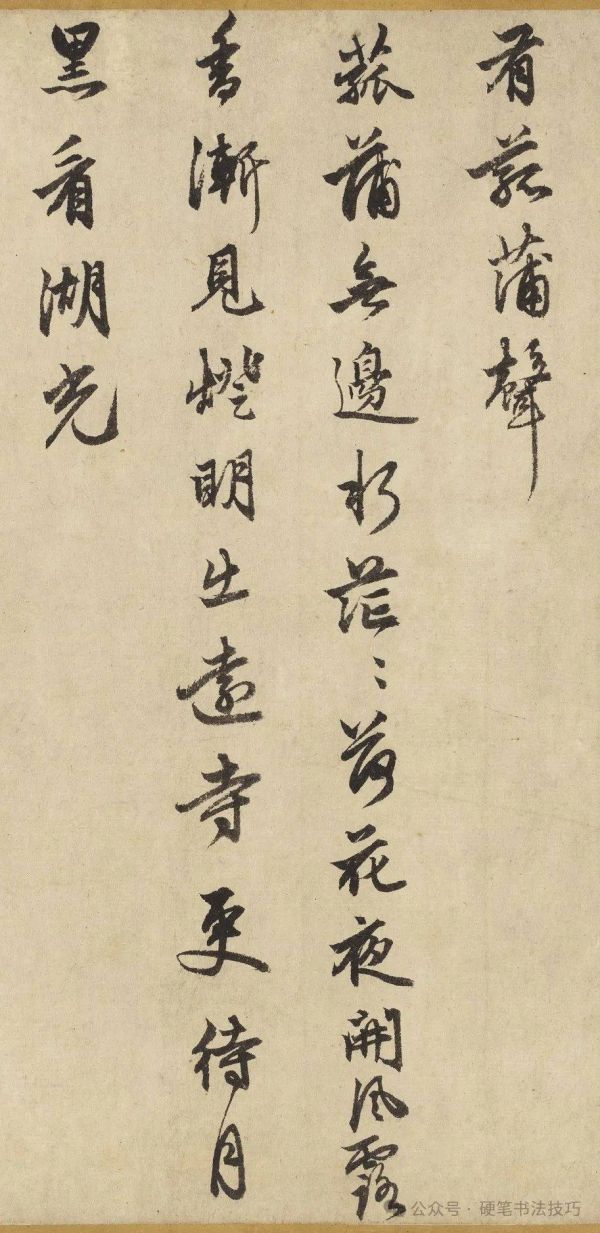 有菰蒲聲
菰蒲無邊水茫〻荷花夜開風露
香漸見燈明出遠寺更待月
黑看湖光
公众号·硬笔书法技巧